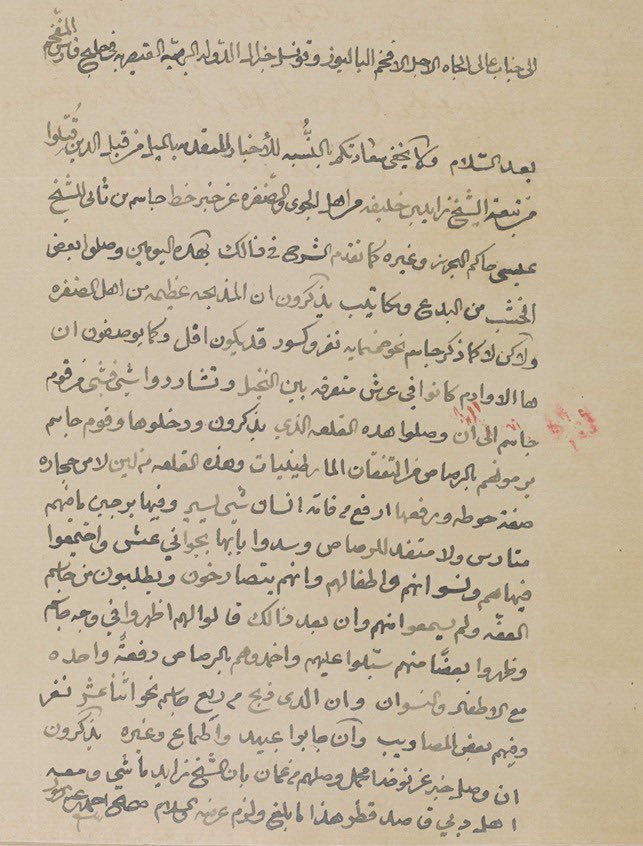 الى جناب عالى الجاه الاجل الافخم الباليوز وقونسل جنرال الدولة البهية القيصرية في خليج فارس المفخم
بعد السلام وكما يخفى سعادتكم بالنسبه للأخبار المتقدمه بالميل من قبل الذين قُتلوا
من تبعة الشيخ زايد بن خليفه من اهل الجوى والضفره عن خبر خط جاسم بن ثانى للشيخ
عيسى حاكم البحرين وغيره كما تقدم الشرح فى ذالك بهذه اليومين وصلوا بعض
الخشب من البدع ومكاتيب يذكرون ان المذبحه عظيمه من اهل الضفره
ولاكن لا كما ذكر جاسم نحو خمسمايه نفر وكسور قد يكون اقل وكما يوصفون ان
ها الاوادم كانوا في عرش متفرقه بين النخيل وتشاردوا شي فشي من قوم
جاسم الى ان وصلوا هذه القلعه الذي يذكرون ودخلوها وقوم جاسم
يرمونهم بالرصاص من التفقان المارطينيات وهذه القلعه من لبن لا من حجاره
صفة حوطه ويرفعها ارفع من قامة انسان شي يسير وفيها برجين ما فيهم
متارس ولا منفد للرصاص وسدوا بابها بجواني عيش واجتمعوا
فيها هم ونسوانهم واطفالهم وانهم يتصارخون ويطلبون من جاسم
العفه ولم يسمعوا منهم وان بعد ذالك قالوا لهم اظهروا في وجه جاسم
وظهروا بعضًا منهم ستلوا عليهم واخدوهم بالرصاص دفعةً واحده
مع الاطفال والنسوان وان الذى ذبح من ربع جاسم نحو اثنا عشر نفر
وفيهم بعض المصاويب وان جابوا عبيد واطماع وغيره يذكرون
ان وصل خبر عن نوخذا محمل وصلهم من عمان بان الشيخ زايد ماشي ومعه
اهل دبي قاصد قطر هذا ما بلغ ولزم عرضه والسلام